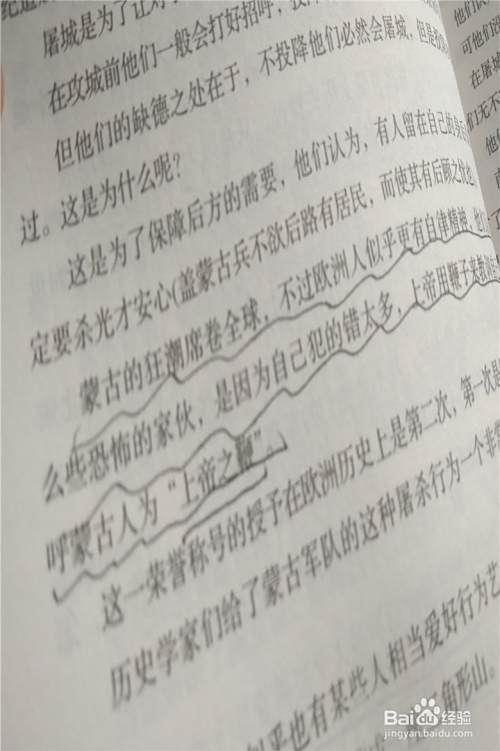 屠城是为了让对
在攻城前他们一般会打好招呼，
但他们的缺德之处在于，不投降他们必然会屠城，但是
过。这是为什么呢？
这是为了保障后方的需要，他们认为，有人留在自己的
定要杀光才安心(盖蒙古兵不欲后路有居民，而使其有后顾之忧
蒙古的狂潮席卷全球，不过欧洲人似乎更有自律精神，
么些恐怖的家伙，是因为自己犯的错太多，上帝用鞭子来
呼蒙古人为“上帝之鞭”
这一荣誉称号的授予在欧洲历史上是第二次，第一次
历史学家们给了蒙古军队的这种屠杀行为一个非
乎也有某些人相当爱好行为艺
角形山。
Baidu经验
jingyan.baidu.com